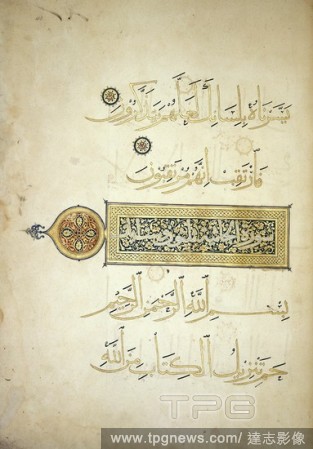 يَسَّرْنَاهُ بِلِسَانِكَ لَعَلَّهُمْ يَتَذَكَّرُونَ
فَارْتَقِبْ إِنَّهُمْ مُرْتَقِبُونَ
بِسْمِ اللَّهِ الرَّحْمَنِ الرَّحِيمِ
حم تَنْزِيلُ الْكِتَابِ مِنَ اللَّهِ
TPG
www.tpgnews.com/ 達志影像